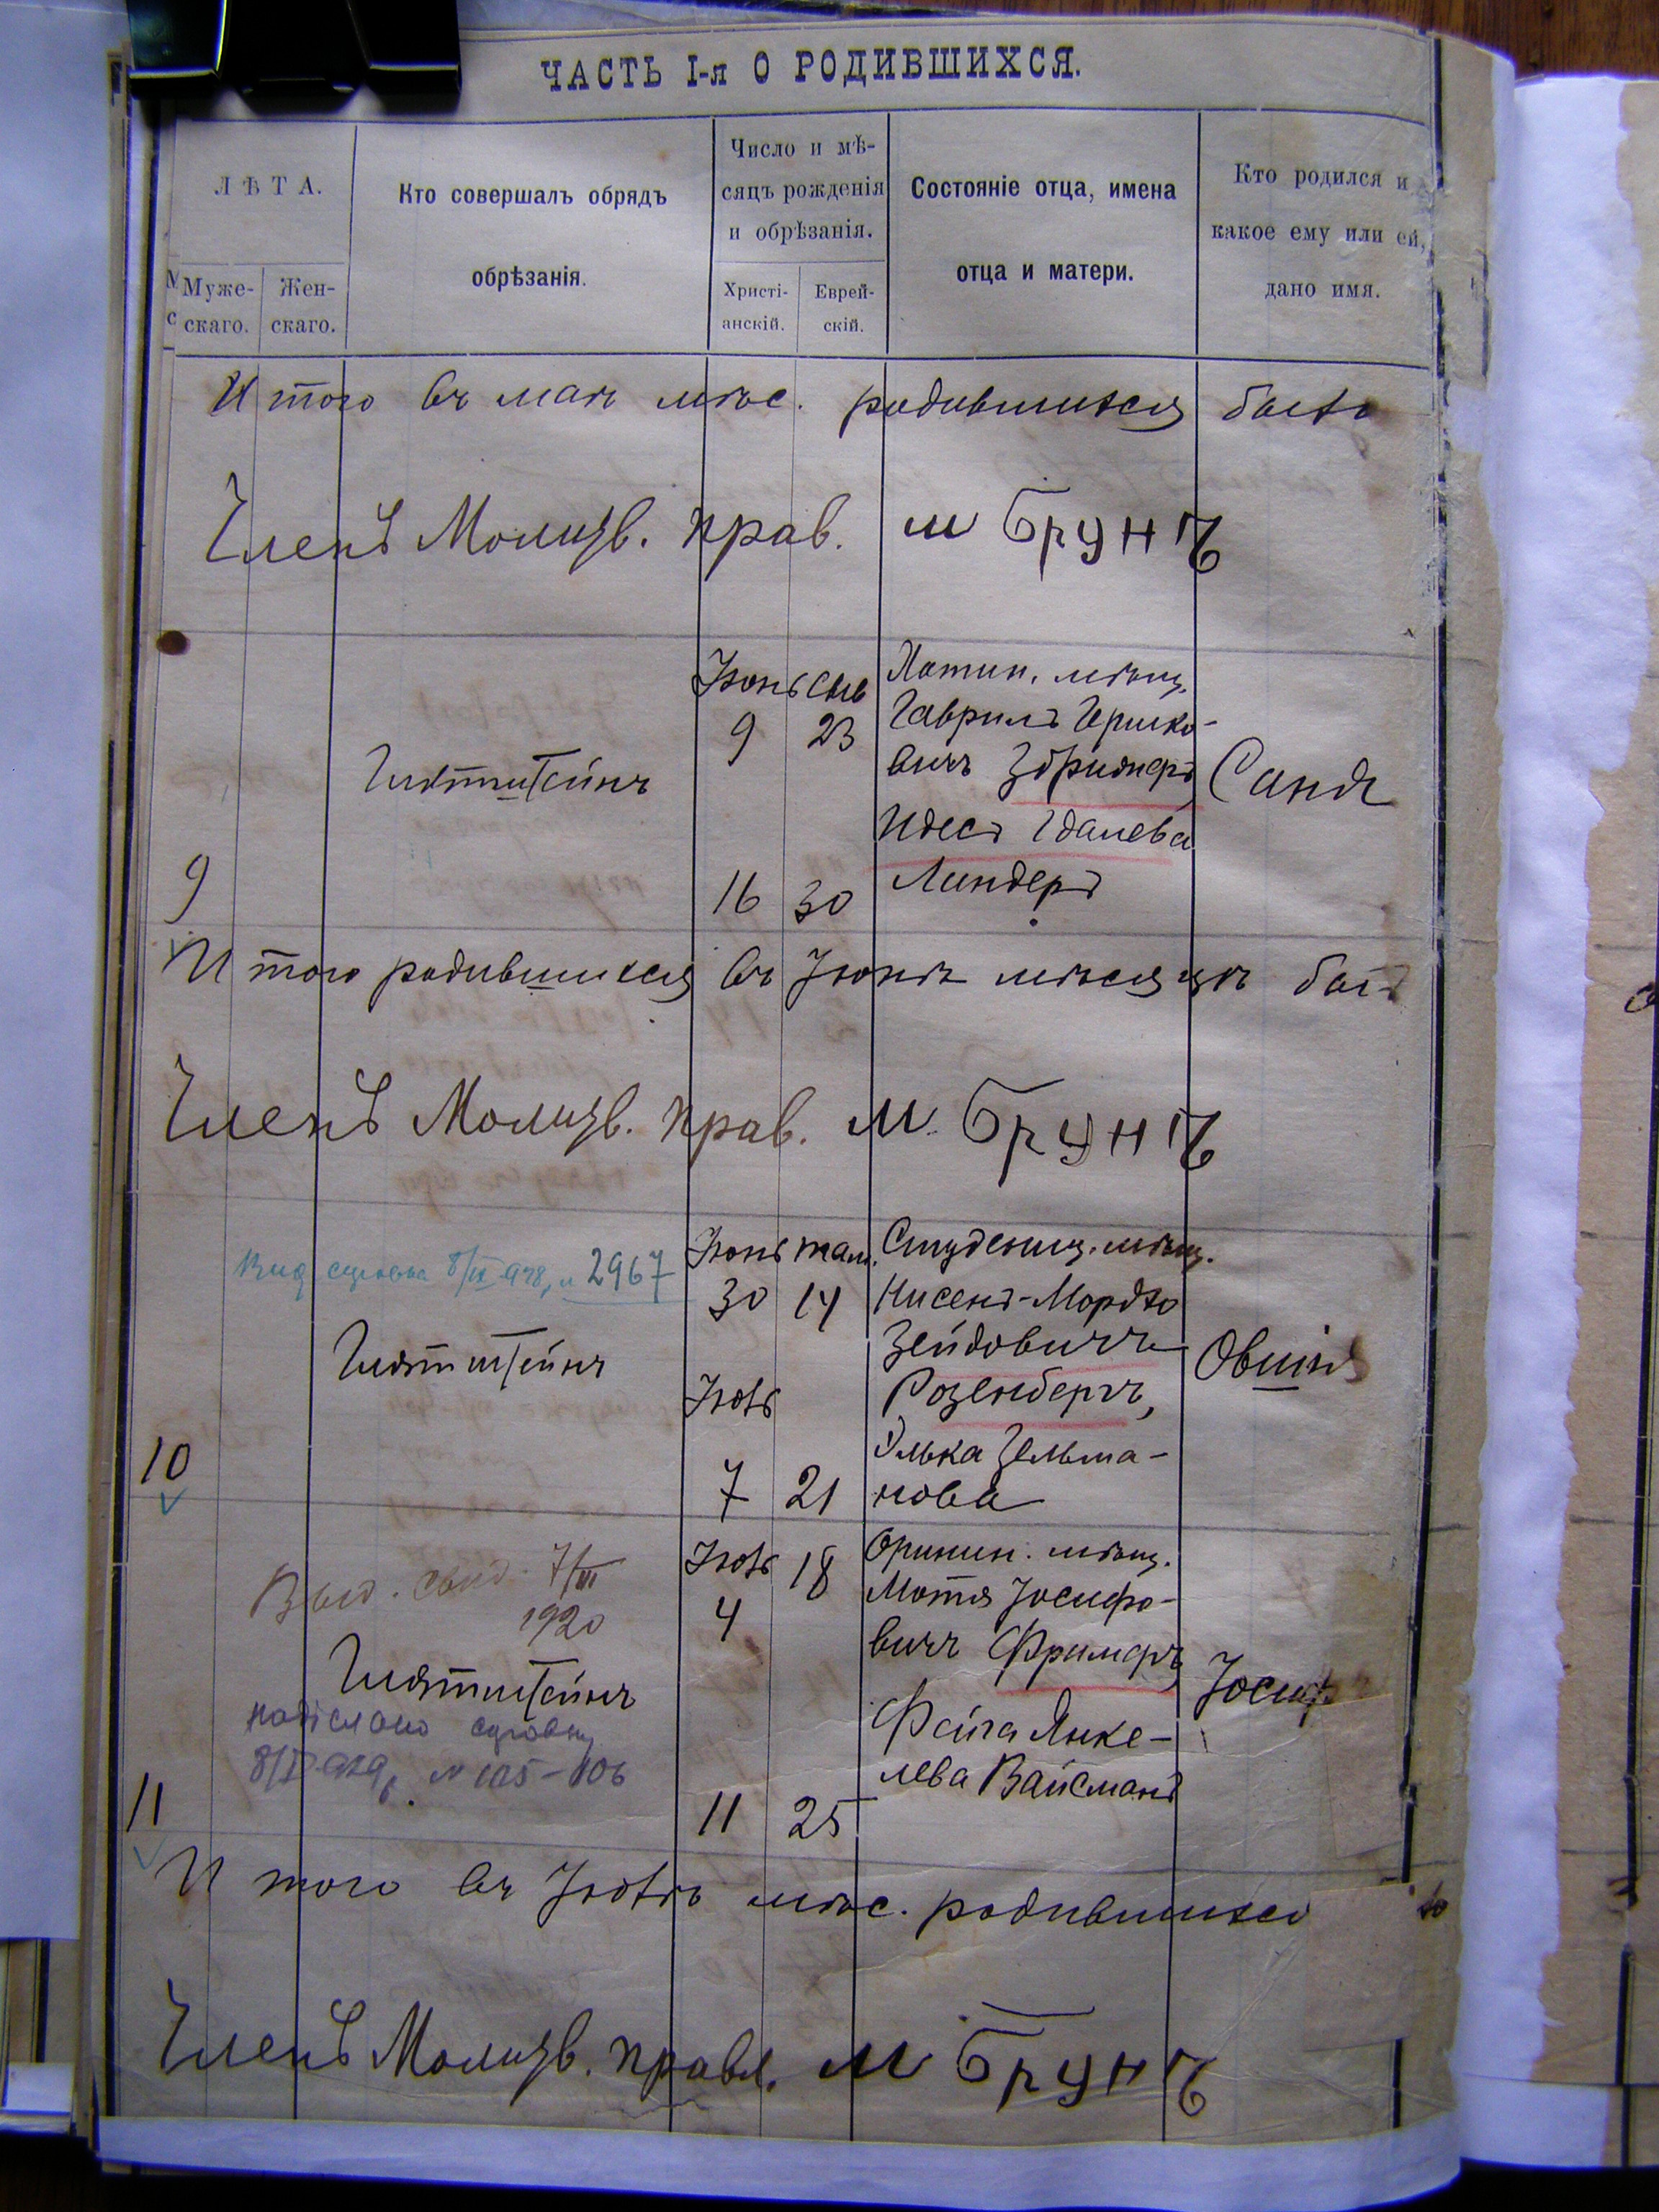 ЧАСТЬ I-я О РОДИВШИХСЯ.
ЛѢТА.
Муже-
скаго.
Жен-
скаго.
Кто совершалъ обрядъ
обрѣзанія.
Число и мѣ-
сяцъ рожденія
и обрѣзанія.
Христі-
анскій.
Еврей-
скій.
Состояніе отца, имена
отца и матери.
Кто родился и
какое ему или ей,
дано имя.
И того въ маѣ мѣс. родившихся
Членъ Молитв. прав. М Брунъ
9
Гиятштейнъ
Іюнь
9
16
Сив
23
30
Хотин. мѣщ.
Гаврилъ Гершко-
вичъ
Идесъ Гдалева
Линдеръ
И того родившихся въ Іюнѣ мѣсяцѣ
Членъ Молитв. прав. М. Брунъ
10
8/IX 928, № 2967
Гиятштейнъ
Іюнь
30
Іюль
7
там.
14
21
Студениц. мѣщ.
Нисенъ-Мордко
Зейдовичъ
Розенбергъ,
Элька Зельма-
нова
Овшія
11
Выд. свид. 7/III
1920
Гиятштейнъ
надіслано
№ 105-106
Іюль
4
11
18
25
Оринин. мѣщ.
Мотя Іосифо-
вичъ Фримеръ
Фейга Янке-
лева Вайсманъ
Іосифъ
И того въ Іюлѣ мѣс. родившихся
Членъ Молитв. правл. М Брунъ